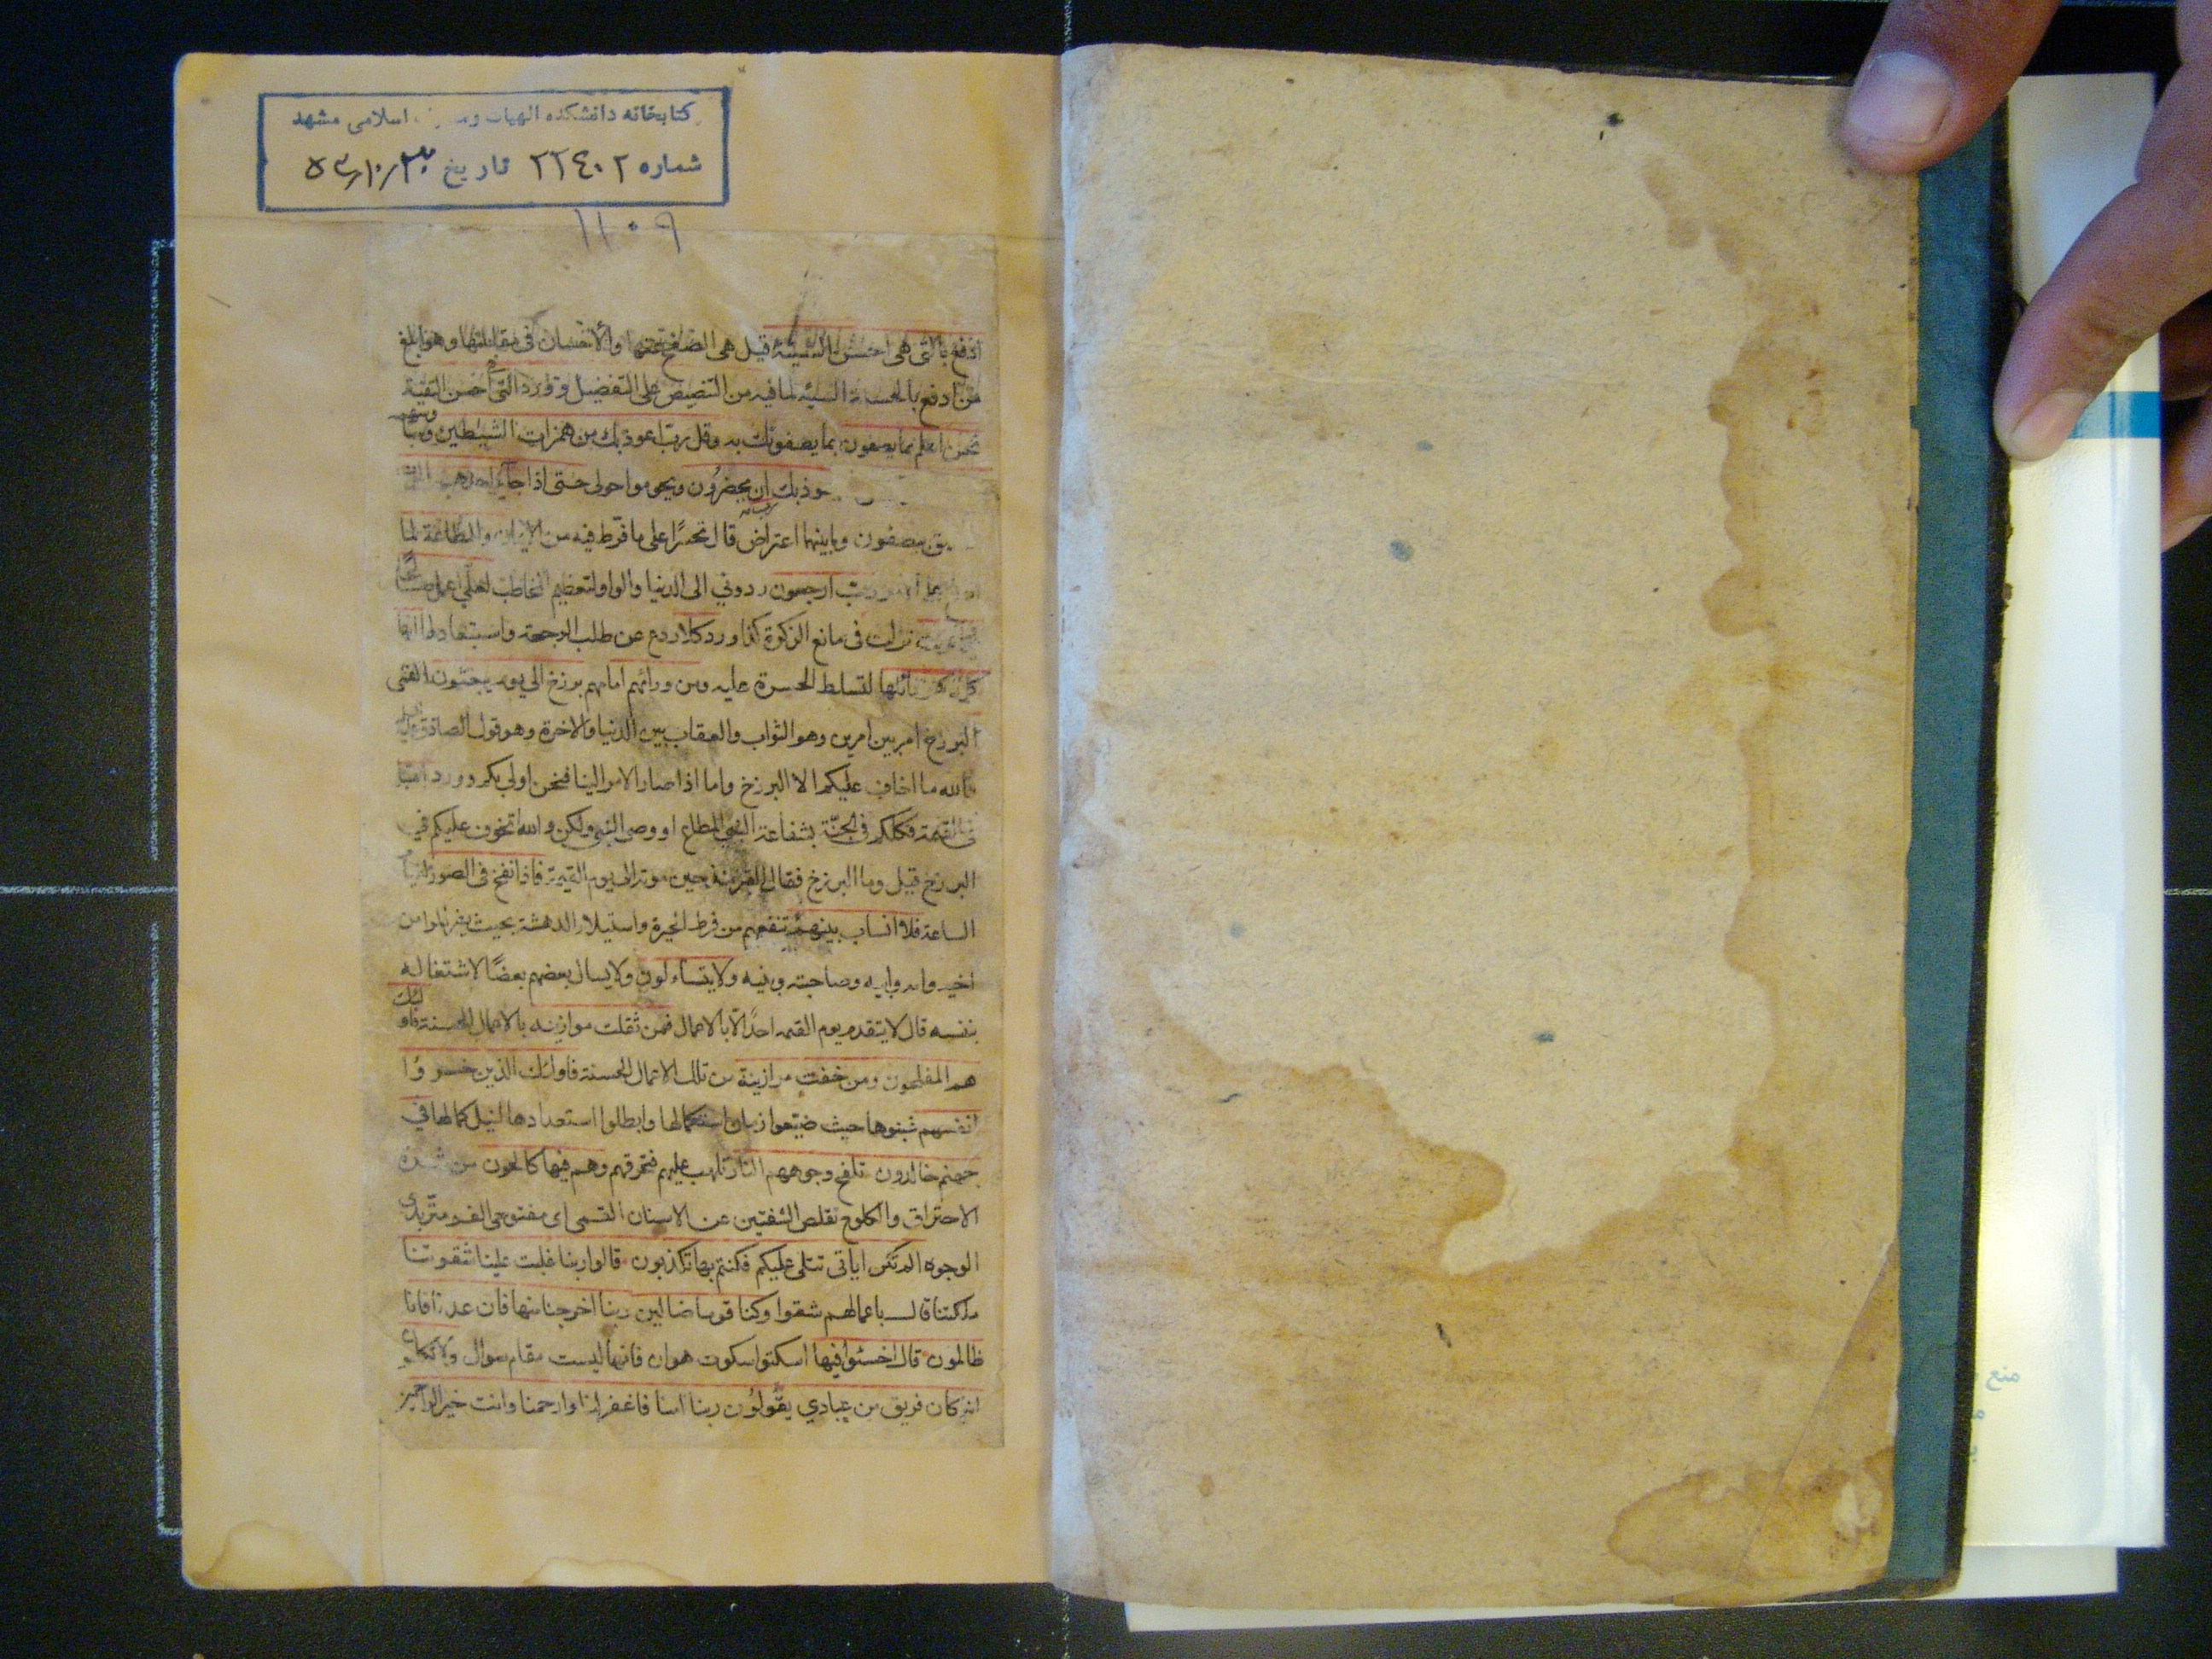 كتابخانه دانشكده الهيات و اسلامى مشهد
شماره ٢٢٤٠٢ تاريخ
١١٠٩
ادفع بالتى هى احسن السيئة قيل هى الصفح عنها والاحسان فى مقابلتها وهو ابلغ
من ادفع بالحسنة السيئة لما فيه من التنصيص على التفضيل وورد التى احسن التقية
نحن اعلم بما يصفون بما يصفونك به وقل رب اعوذ بك من همزات الشيطين
وذبك ان يحضرون ويحوموا حولى حتى اذا جاء احدهم
بيصفون وما بينهما اعتراض قال تحسرا على ما فرط فيه من الايمان والطاعة لما
رب ارجعون ردونى الى الدنيا والواو لتعظيم المخاطب لعلى اعمل
نزلت فى مانع الزكوة كذا ورد كلا ردع عن طلب الرجعة واستبعاد لها انها
كلمة هو قائلها لتسلط الحسرة عليه ومن ورائهم امامهم برزخ الى يوم يبعثون القمى
البرزخ امر بين امرين وهو الثواب والعقاب بين الدنيا والاخرة وهو قول الصادق
والله ما اخاف عليكم الا البرزخ واما اذا صار الامر الينا فنحن اولى بكم وورد
فى القيمة فكلكم فى الجنة بشفاعة النبى المطاع او وصى النبى ولكن والله اتخوف عليكم فى
البرزخ قيل وما البرزخ فقال القبر منذ حين موته الى يوم القيمة فاذا نفخ فى الصور
الساعة فلا انساب بينهم تنفعهم من فرط الحيرة واستيلاء الدهشة بحيث يفر المرء من
اخيه وامه وابيه وصاحبته وبنيه ولا يتساءلون ولا يسال بعضهم بعضا لاشتغاله
بنفسه قال لا يتقدم يوم القيمة احد الا بالاعمال فمن ثقلت موازينه بالاعمال الحسنة فاولئك
هم المفلحون ومن خفت موازينه من تلك الاعمال الحسنة فاولئك الذين خسروا
انفسهم غبنوها حيث ضيعوا زمان استكمالها وابطلوا استعدادها لنيل كمالها فى
جهنم خالدون تلفح وجوههم النار تلهب عليهم فتحرقهم وهم فيها كالحون من شدة
الاحتراق والكلوح تقلص الشفتين عن الاسنان القمى اى مفتوحى الفم متربدى
الوجوه الم تكن اياتى تتلى عليكم فكنتم بها تكذبون قالوا ربنا غلبت علينا شقوتنا
ملكتنا قال باعمالهم شقوا وكنا قوما ضالين ربنا اخرجنا منها فان عدنا فانا
ظالمون قال اخسئوا فيها اسكتوا سكوت هوان فانها ليست مقام سوال ولا تكلمون
انه كان فريق من عبادي يقولون ربنا امنا فاغفر لنا وارحمنا وانت خير الراحمين